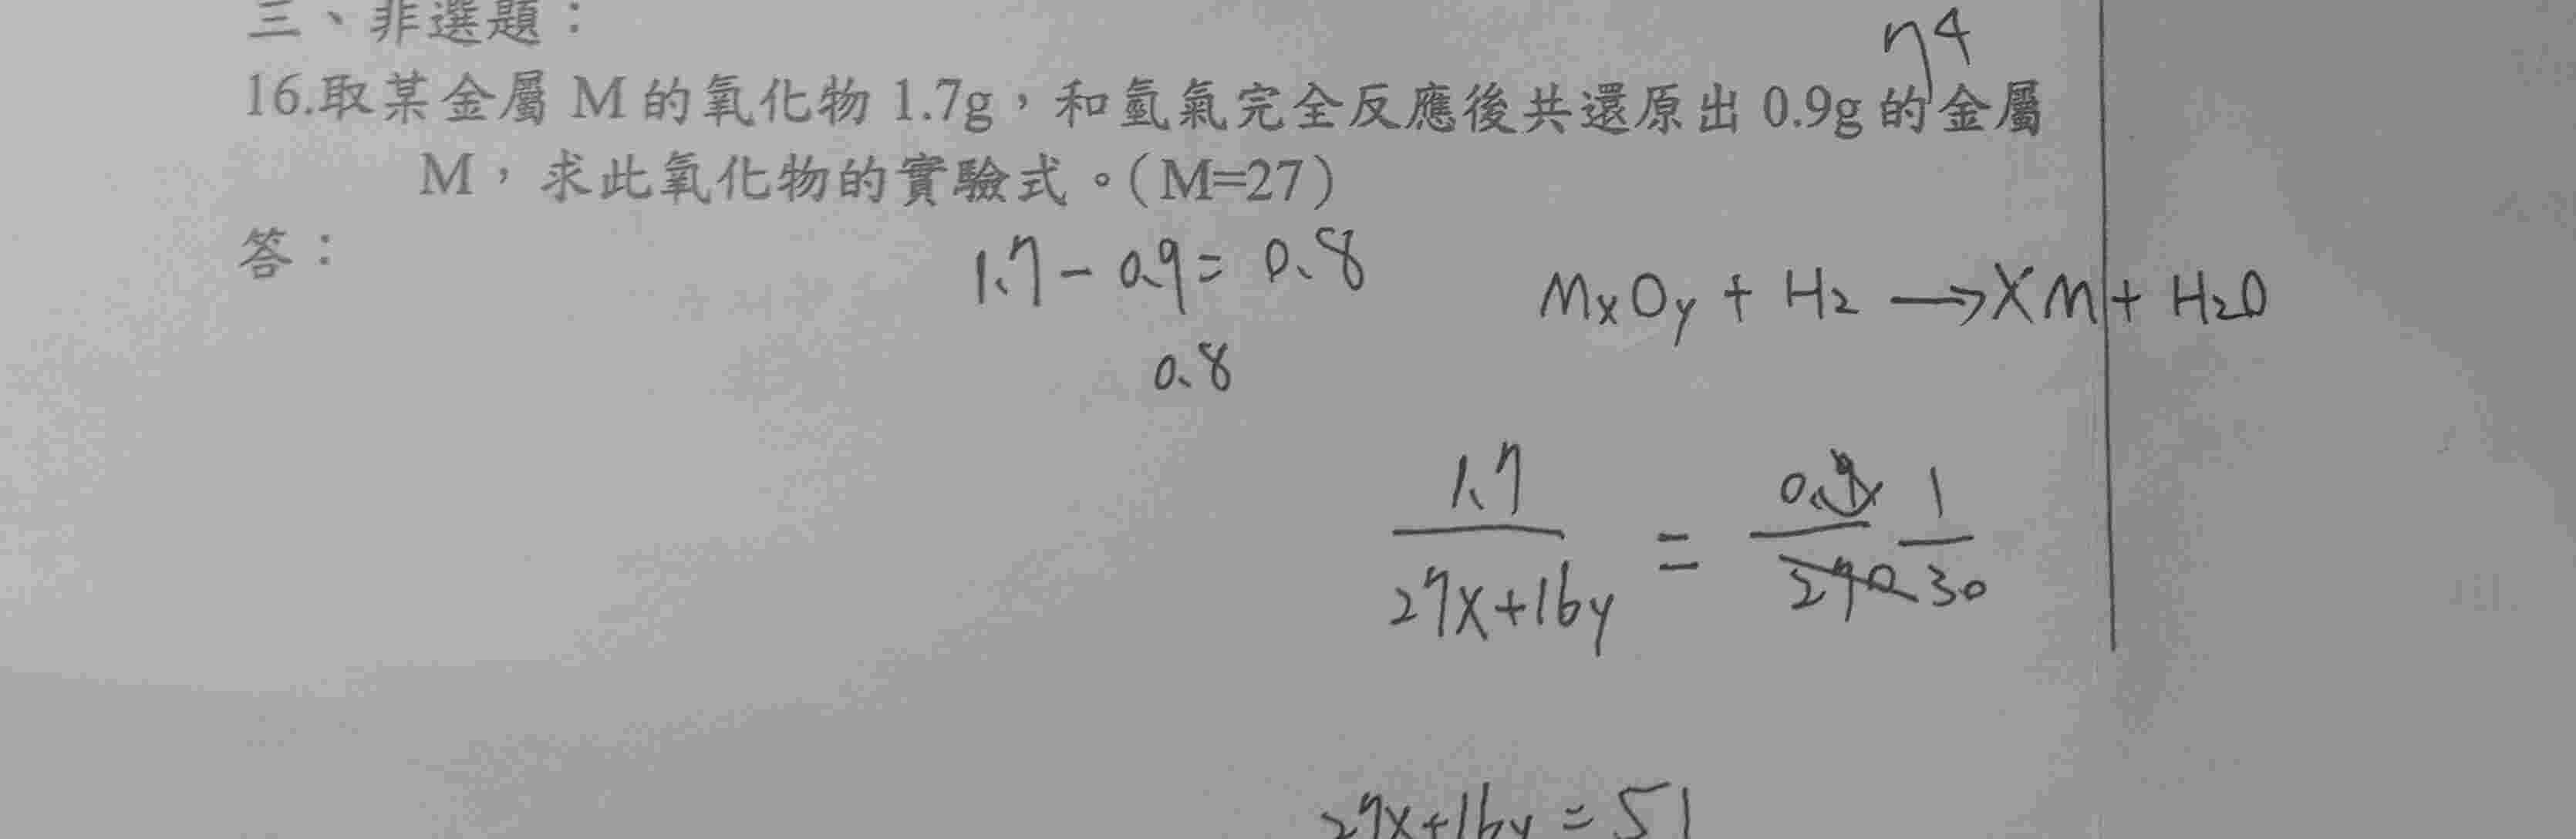 三、非選題：
n4
16.取某金屬 M 的氧化物 1.7g，和氫氣完全反應後共還原出 0.9g 的金屬
M，求此氧化物的實驗式。(M=27)
答：
1.7 - 0.9 = 0.8
MxOy + H2 → XM + H2O
0.8
1.7 / 27x+16y = 0.9 / 270 1 / 30
27x+16y = 51